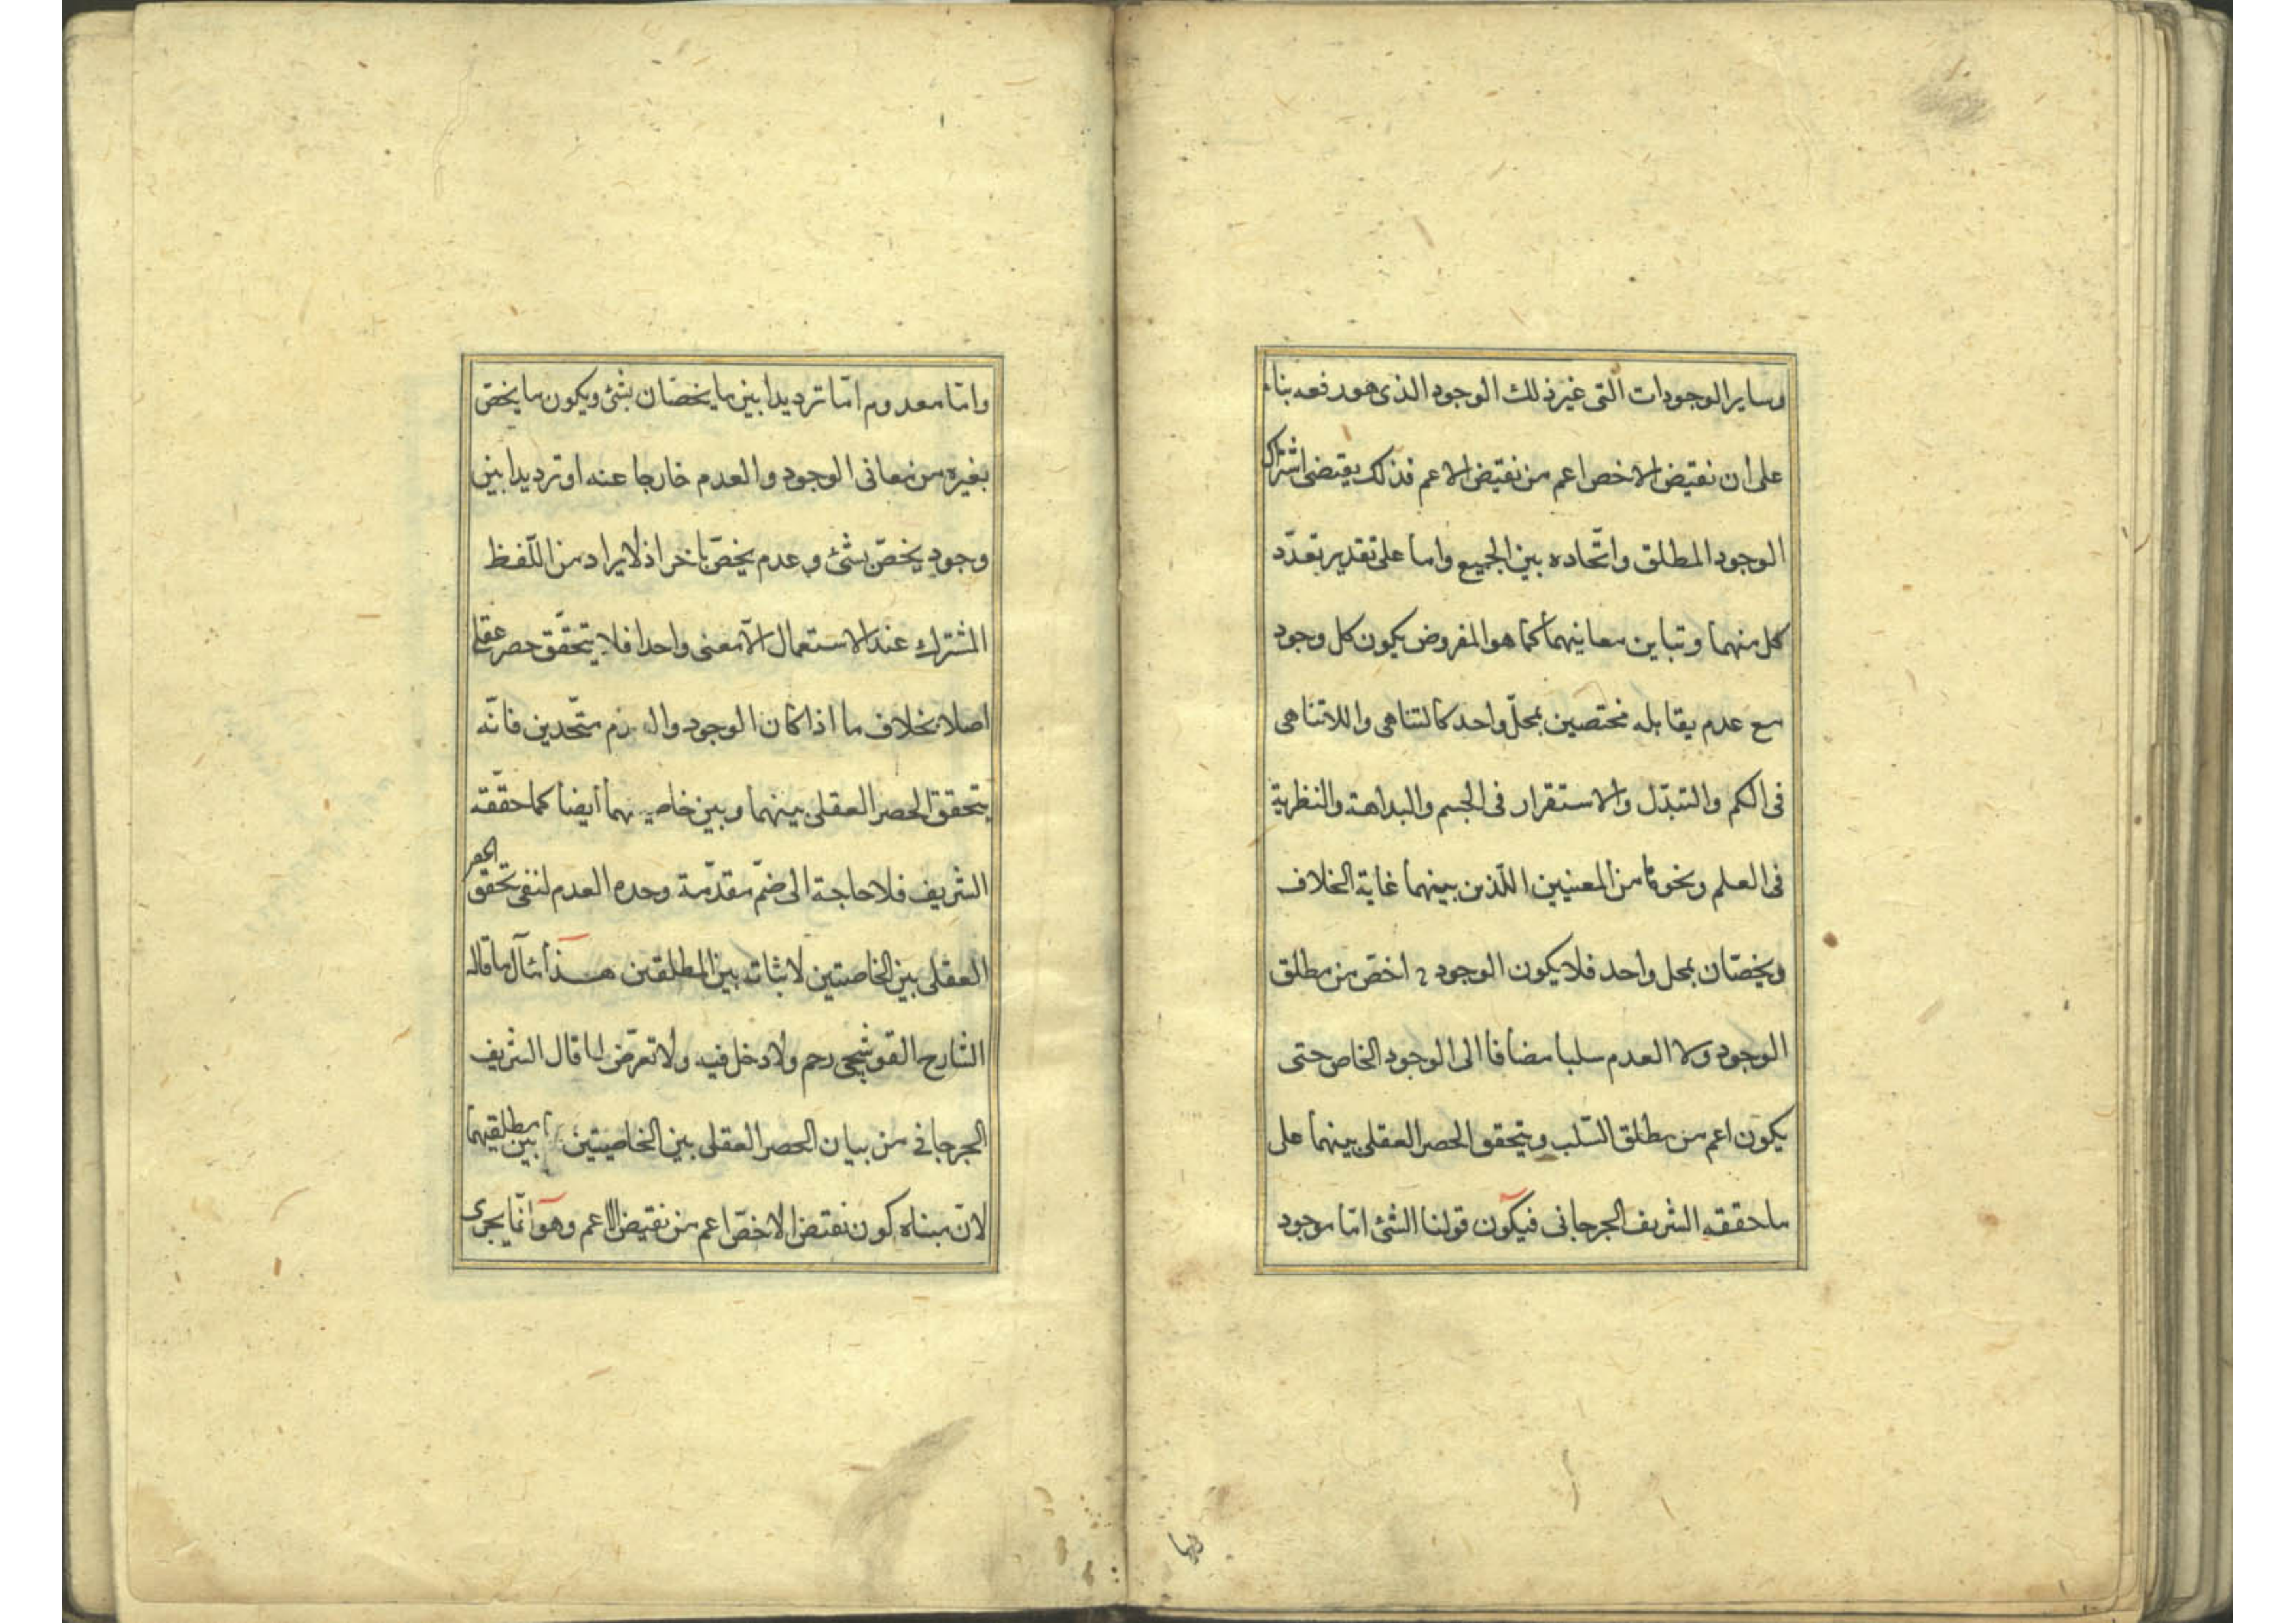 وساير الوجودات التى غير ذلك الوجود الذى هو رفعه بناء
على ان نقيض الاخص اعم من نقيض الاعم فذلك يقتضى اشتراك
الوجود المطلق واتّحاده بين الجميع واما على تقدير تعدّد
كل منهما وتباين معانيهما كما هو المفروض يكون كل وجود
مع عدم يقابله مختصين بمحلّ واحد كالتناهى واللاتناهى
فى الكم والتبدّل والاستقرار فى الجسم والبداهة والنظرية
فى العلم ونحوها من المعنيين اللّذين بينهما غاية الخلاف
ويخصّان بمحل واحد فلا يكون الوجود ح اخصّ من مطلق
الوجود ولا العدم سلبا مضافا الى الوجود الخاص حتى
يكون اعم من مطلق السّلب ويتحقق الحصر العقلى بينهما على
ما حققه الشريف الجرجانى فيكون قولنا الشئ امّا موجود
وامّا معدوم امّا ترديدا بين ما يخصّان بشئ ويكون ما يخصّ
بغيره من معانى الوجود والعدم خارجا عنه او ترديدا بين
وجود يخصّ بشئ وعدم يخصّ باخر اذ لا يراد من اللّفظ
المشترك عند الاستعمال الّا معنى واحدا فلا يتحقّق حصر عقلى
اصلا بخلاف ما اذا كان الوجود وال دم متّحدين فانّه
يتحقق الحصر العقلى بينهما وبين خاصيهما أيضا كما حقّقه
الشريف فلا حاجة الى ضمّ مقدّمة وحده العدم لنفى تحقق الحصر
العقلى بين الخاصيتين لا بثات بين المطلقين هذا مآل ما قاله
الشارح القوشجى رحم ولا دخل فيه ولا تعرّض لما قال الشريف
الجرجانى من بيان الحصر العقلى بين الخاصيتين بين مطلقيهما
لانّ مبناه كون نقيض الاخصّ اعم من نقيض الاعم وهو انّما يجرى